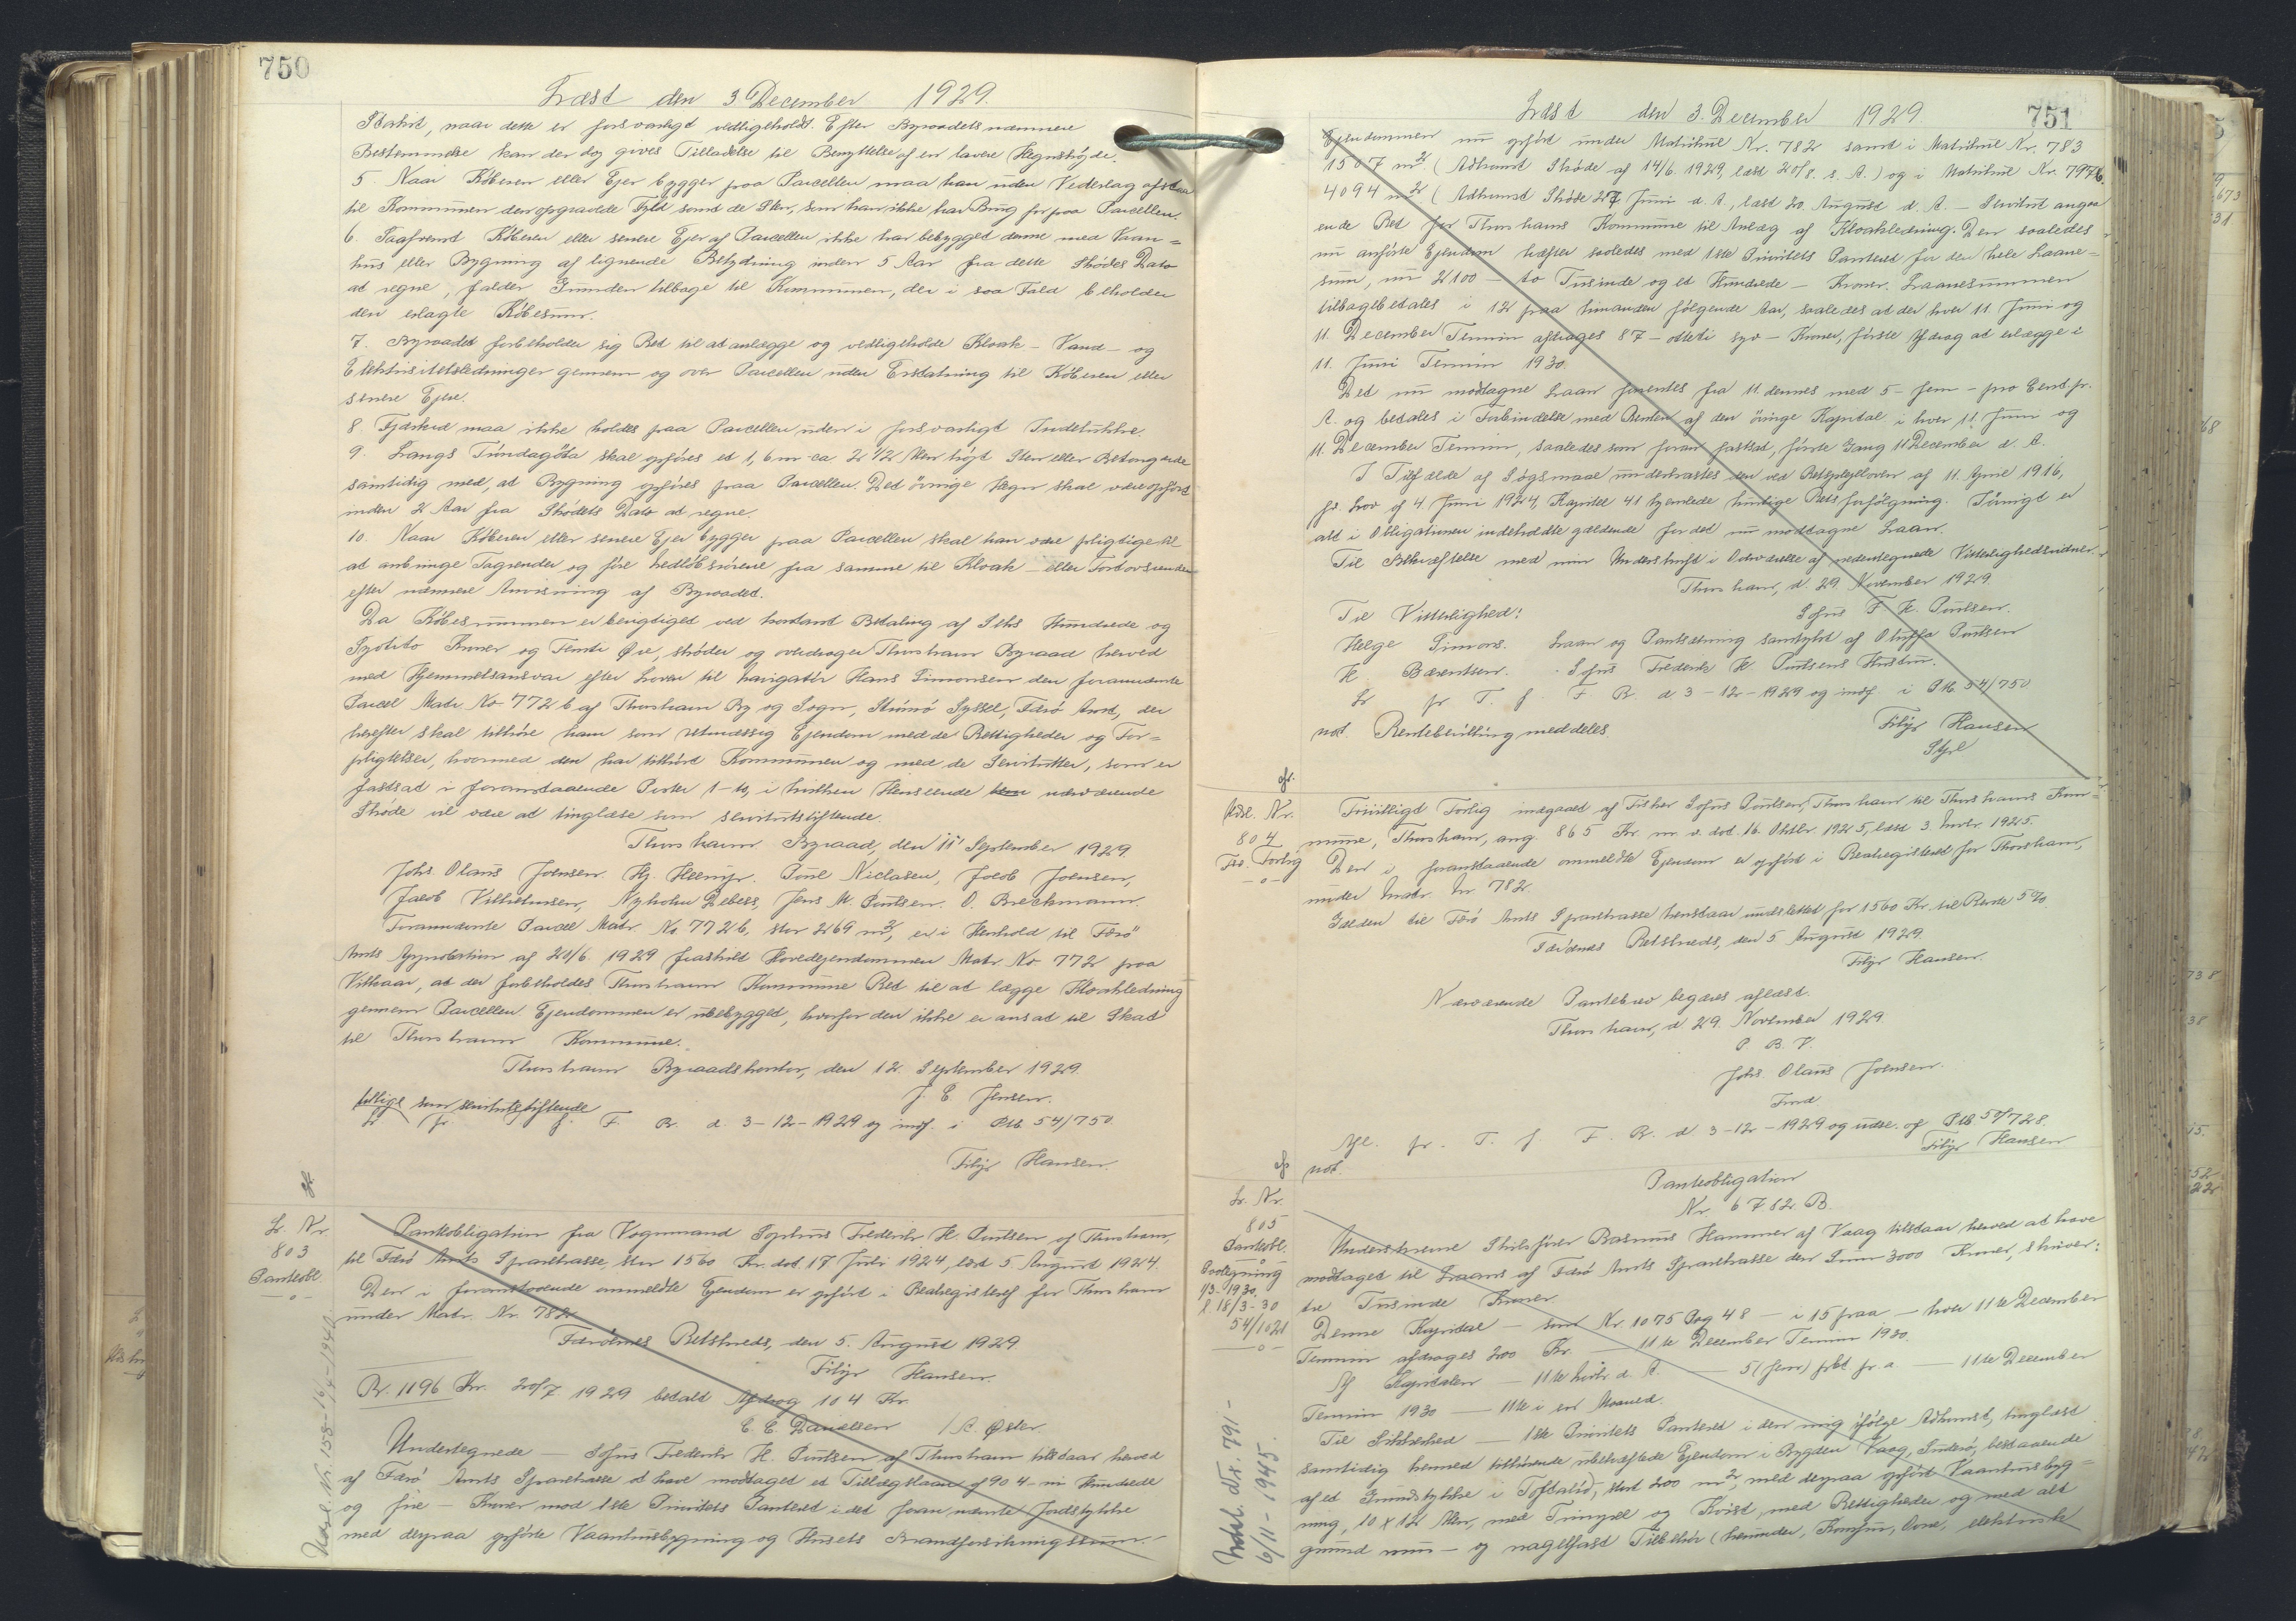 750
Læst den 3 December 1929.
Stakit, naar dette er forsvarligt vedligeholdt. Efter Byraadets nærmere
Bestemmelse kan der dog gives Tilladelse til Benyttelse af en lavere Hegnshøjde.
5 Naar Køberen eller Ejer bygger paa Parcellen maa han uden Vederlag afstaa
til Kommunen den opgravede Fyld samt de Sten, som han ikke har Brug for paa Parcellen.
6. Saafremt Køberen eller senere Ejer af Parcellen ikke har bebygget denne med Vaan=
hus eller Bygning af lignende Betydning inden 5 Aar fra dette Skødes Dato
at regne, falder Grunden tilbage til Kommunen, der i saa Fald beholder
den erlagte Købesum.
7. Byraadet forbeholder sig Ret til at anlægge og vedligeholde Kloak- Vand- og
Elektricitetsledninger gennem og over Parcellen uden Erstatning til Køberen eller
senere Ejere.
8 Fjerkræ maa ikke holdes paa Parcellen uden i forsvarligt Indelukke.
9. Langs Tindagøta skal opføres et 1,6 m ca 2 1/2 Alen højt Sten eller Betongærde
samtidig med, at Bygning opføres paa Parcellen. Det øvrige Hegn skal være opført
inden 2 Aar fra Skødets Dato at regne.
10. Naar Køberen eller senere Ejer bygger paa Parcellen skal han være pligtige til
at anbringe Tagrender og føre Nedløbsrørene fra samme til Kloak- eller Fortovsrenden
efter nærmere Anvisning af Byraadet.
Da Købesummen er berigtiget ved kontant Betaling af Seks Hundrede og
Syvti to Kroner og Femti Øre, skøder og overdrager Thorshavn Byraad herved
med Hjemmelsansvar efter Loven til Navigatør Hans Simonsen den forannævnte
Parcel Matr. No 772 b af Thorshavn By og Sogn, Strømø Syssel, Færø Amt, der
herefter skal tilhøre ham som retmæssig Ejendom med de Rettigheder og For=
pligtelser, hvormed den har tilhørt Kommunen og med de Servitutter, som er
fastsat i foranstaaende Poster 1-10, i hvilken Henseende nærværende
Skøde vil være at tinglæse som servitutstiftende.
Thorshavn Byraad, den 11 September 1929.
Johs. Olaus Joensen. Hj. Heinjr. Poul Niclasen, Jacob Joensen,
Jacob Vilhelmsen, Nyholm Debess, Jens M. Poulsen. O. Brechmann.
Forannævnte Parcel Matr. No 772 b, stor 269 m2, er i Henhold til Færø
Amts Approbation af 20/6. 1929 fraskilt Hovedejendommen Matr. No 772 paa
Vilkaar, at der forbeholdes Thorshavn Kommune Ret til at lægge Kloakledning
gennem Parcellen. Ejendommen er ubebygget, hvorfor den ikke er ansat til Skat
til Thorshavn Kommune.
Thorshavn Byraadskontor, den 12. September 1929.
J. E. Jensen.
tillige som servitutstiftende
Lr fr f. F. R. d. 3-12-1929 og indf. i Ptb. 54/750
Filip Hansen.
Lr Nr
803
Panteobl.
-o-
Pantobligation fra Vognmand Sophus Frederik H. Poulsen af Thorshavn,
til Færø Amts Sparekasse, stor 1560 Kr. dat 17 Juli 1924, læst 5. August 1924.
Den i foranstaaende ommeldte Ejendom er opført i Realregistret for Thorshavn
under Matr. Nr. 782
Færøernes Retskreds, den 5. August 1929
Filip Hansen.
Pr. 1196 Kr. 20/7 1929 betalt Afdrag 104 Kr.
E. E. Danielsen / A. Øster.
Undertegnede - Sofus Frederik H. Poulsen af Thorshavn tilstaar herved
af Færø Amts Sparekasse at have modtaget et Tillægslaan af 904 - ni Hundrede
og fire - Kroner mod 1ste Prioritets Panteret i det foran nævnte Jordstykke
med derpaa opførte Vaanhusbygning og Husets Brandforsikringssum.-
Udsl. Nr. 158-16/4-1940.
751
Læst den 3. December 1929.
Ejendommen nu opført under Matrikul Nr. 782 samt i Matrikul Nr. 783
1507 m2. (Adkomst Skøde af 14/6. 1929, læst 20/8. s. A.) og i Matrikul Nr. 797b
4094 m2 (Adkomst Skøde 27 Juni d. A., læst 20. August d. A. - Servitut angaa
ende Ret for Thorshavns Kommune til Anlæg af Kloakledning. Den saaledes
nu anførte Ejendom hæfter saaledes med 1ste Prioritets Panteret for den hele Laane=
sum, nu 2100 - to Tusinde og et Hundrede - Kroner. Laanesummen
tilbagebetales i 12 paa hinanden følgende Aar, saaledes at der hver 11 Juni og
11. December Termin afdrages 87 - otteti syv - Kroner, første Afdrag at erlægge i
11. Juni Termin 1930.
Det nu modtagne Laan forrentes fra 11. dennes med 5 - fem - pro Cent. pr.
A. og betales i Forbindelse med Renten af den øvrige Kapital i hver 11. Juni og
11. December Termin, saaledes som foran fastsat, første Gang 11 December d. A.
I Tilfælde af Søgsmaal underkastes den ved Retsplejeloven af 11. April 1916,
jf. Lov af 4. Juni 1924, Kapitel 41 hjemlede hurtige Retsforfølgning. Iøvrigt er
alt i Obligationen indeholdte gældende for det nu modtagne Laan.
Til Bekræftelse med min Underskrift i Overværelse af nedentegnede Vitterlighedsvidner.
Thorshavn, d. 29. November 1929.
Til Vitterlighed:
Sofus F. H. Poulsen.
Helge Simons. Laan og Pantsætning samtykt af Oluffa Poulsen
H. Bærentsen. Sofus Frederik H. Poulsens Hustru.
Lr fr T. f. F. R. d 3-12-1929 og indf. i Ptb. 54/750
not. Rentebevilling meddeles.
Filip Hansen
Stpl
Udsl. Nr.
804
Fri. Forlig
-o-
Frivilligt Forlig indgaaet af Fisker Sofus Poulsen, Thorshavn til Thorshavns Kom=
mune, Thorshavn, ang. 865 Kr. m. v. dat. 16. Oktbr. 1925, læst 3. Novbr. 1925.
Den i foranstaaende ommeldte Ejendom er opført i Realregistret for Thorshavn,
under Matr. Nr. 782.
Gælden til Færø Amts Sparekasse henstaar uudslettet for 1560 Kr. til Rente 5%.
Færøernes Retskreds, den 5 August 1929.
Filip Hansen.
Nærværende Pantebrev begæres aflæst.
Thorshavn, d. 29. November 1929.
P. B. V.
Johs. Olaus Joensen.
Fmd
Afl. fr. T. f. F. R. d 3-12-1929 og udsl. af Ptb 50/728.
not.
Filip Hansen
Lr. Nr.
805
Panteobl.
-o-
1/3-1930.
l. 18/3-30
54/1021
-o-
Panteobligation
Nr. 6782 B.
Underskrevne Skibsfører Rasmus Hammer af Vaag tilstaar herved at have
modtaget til Laans af Færø Amts Sparekasse den Sum 3000 Kroner, skriver:
tre Tusinde Kroner
Denne Kapital - som Nr. 1075 Pag 48 - i 15 paa - hver 11te December
Termin afdrages 200 Kr. - 11te December Termin 1930.
Af Kapitalen - 11te Novbr. d. A. - 5 (fem) pCt pr. a. - 11te December
Termin 1930 - 11te i en Maaned.
Til Sikkerhed - 1ste Prioritets Panteret i den mig ifølge Adkomst, tinglæst
samtidig hermed tilhørende ubehæftede Ejendom i Bygden Vaag, Suderø, bestaaende
af et Grundstykke i Toftalid, stort 200 m2, med derpaa opført Vaanhusbyg=
ning, 10 x 12 Alen, med Frugel og Kvist, med Rettigheder og med alt
grund mur - og nagelfast Tilbehør (herunder, Komfur, Ovne, elektrisk
Udsl. Nr. 791-
6/11-1945.